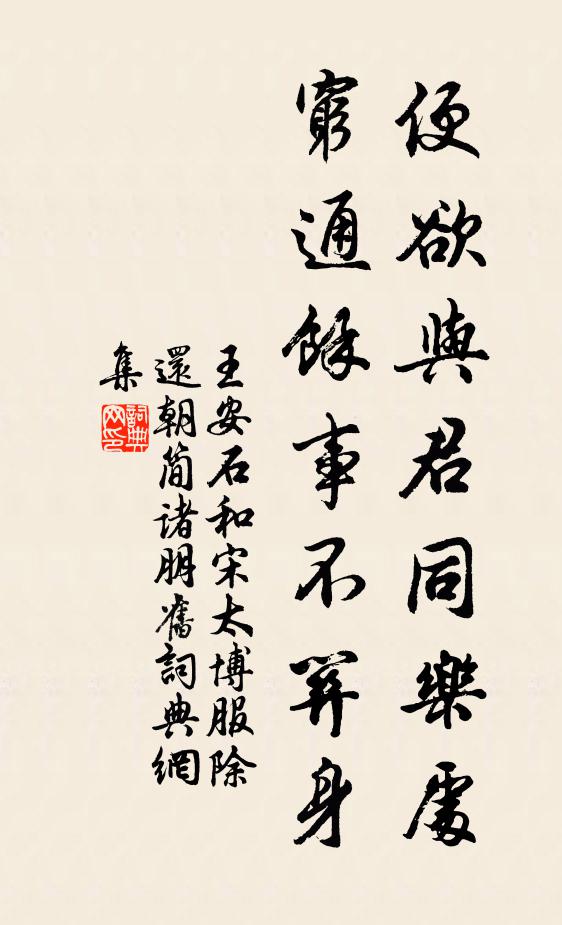 便欲與君同樂處
窮通餘事不關身
王安石和宋太博服除
還朝简諸朋舊詞典網
集
詞典网印